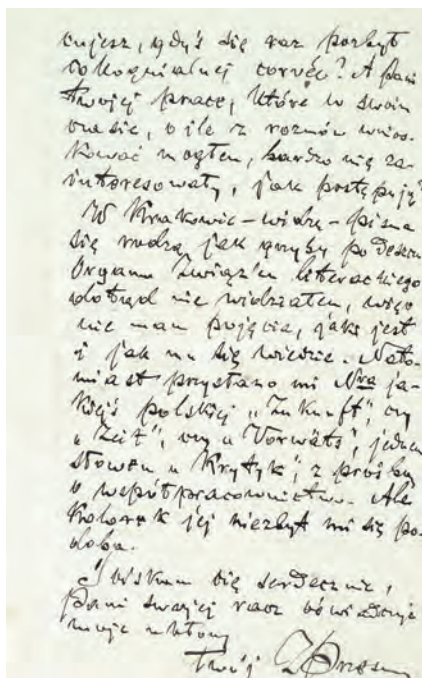 cujesz, gdyś się raz pozbył
cokoquialnej corvée? A Pani
Twojej prace, które w swoim
czasie, o ile z rozmów wnios-
kować mogłem, bardzo mię za-
interesowały, jak postępują?
W Krakowie – widzę – pisma
się rodzą jak grzyby po deszczu
Organu Związku literackiego
dotąd nie widziałem, więc
nie mam pojęcia, jaki jest
i jak mu się wiedzie. Nato-
miast przysłano mi Nra ja-
kiejś polskiej „Zukunft", czy
„Zeit", czy „Vorwärts", jednem
słowem „Krytyk", z prośbą
o współpracownictwo. Ale
Kolorek jej niezbyt mi się po-
doba.
Ściskam Cię serdecznie,
Pani swojej racz oświadczyć
moje ukłony
Twój